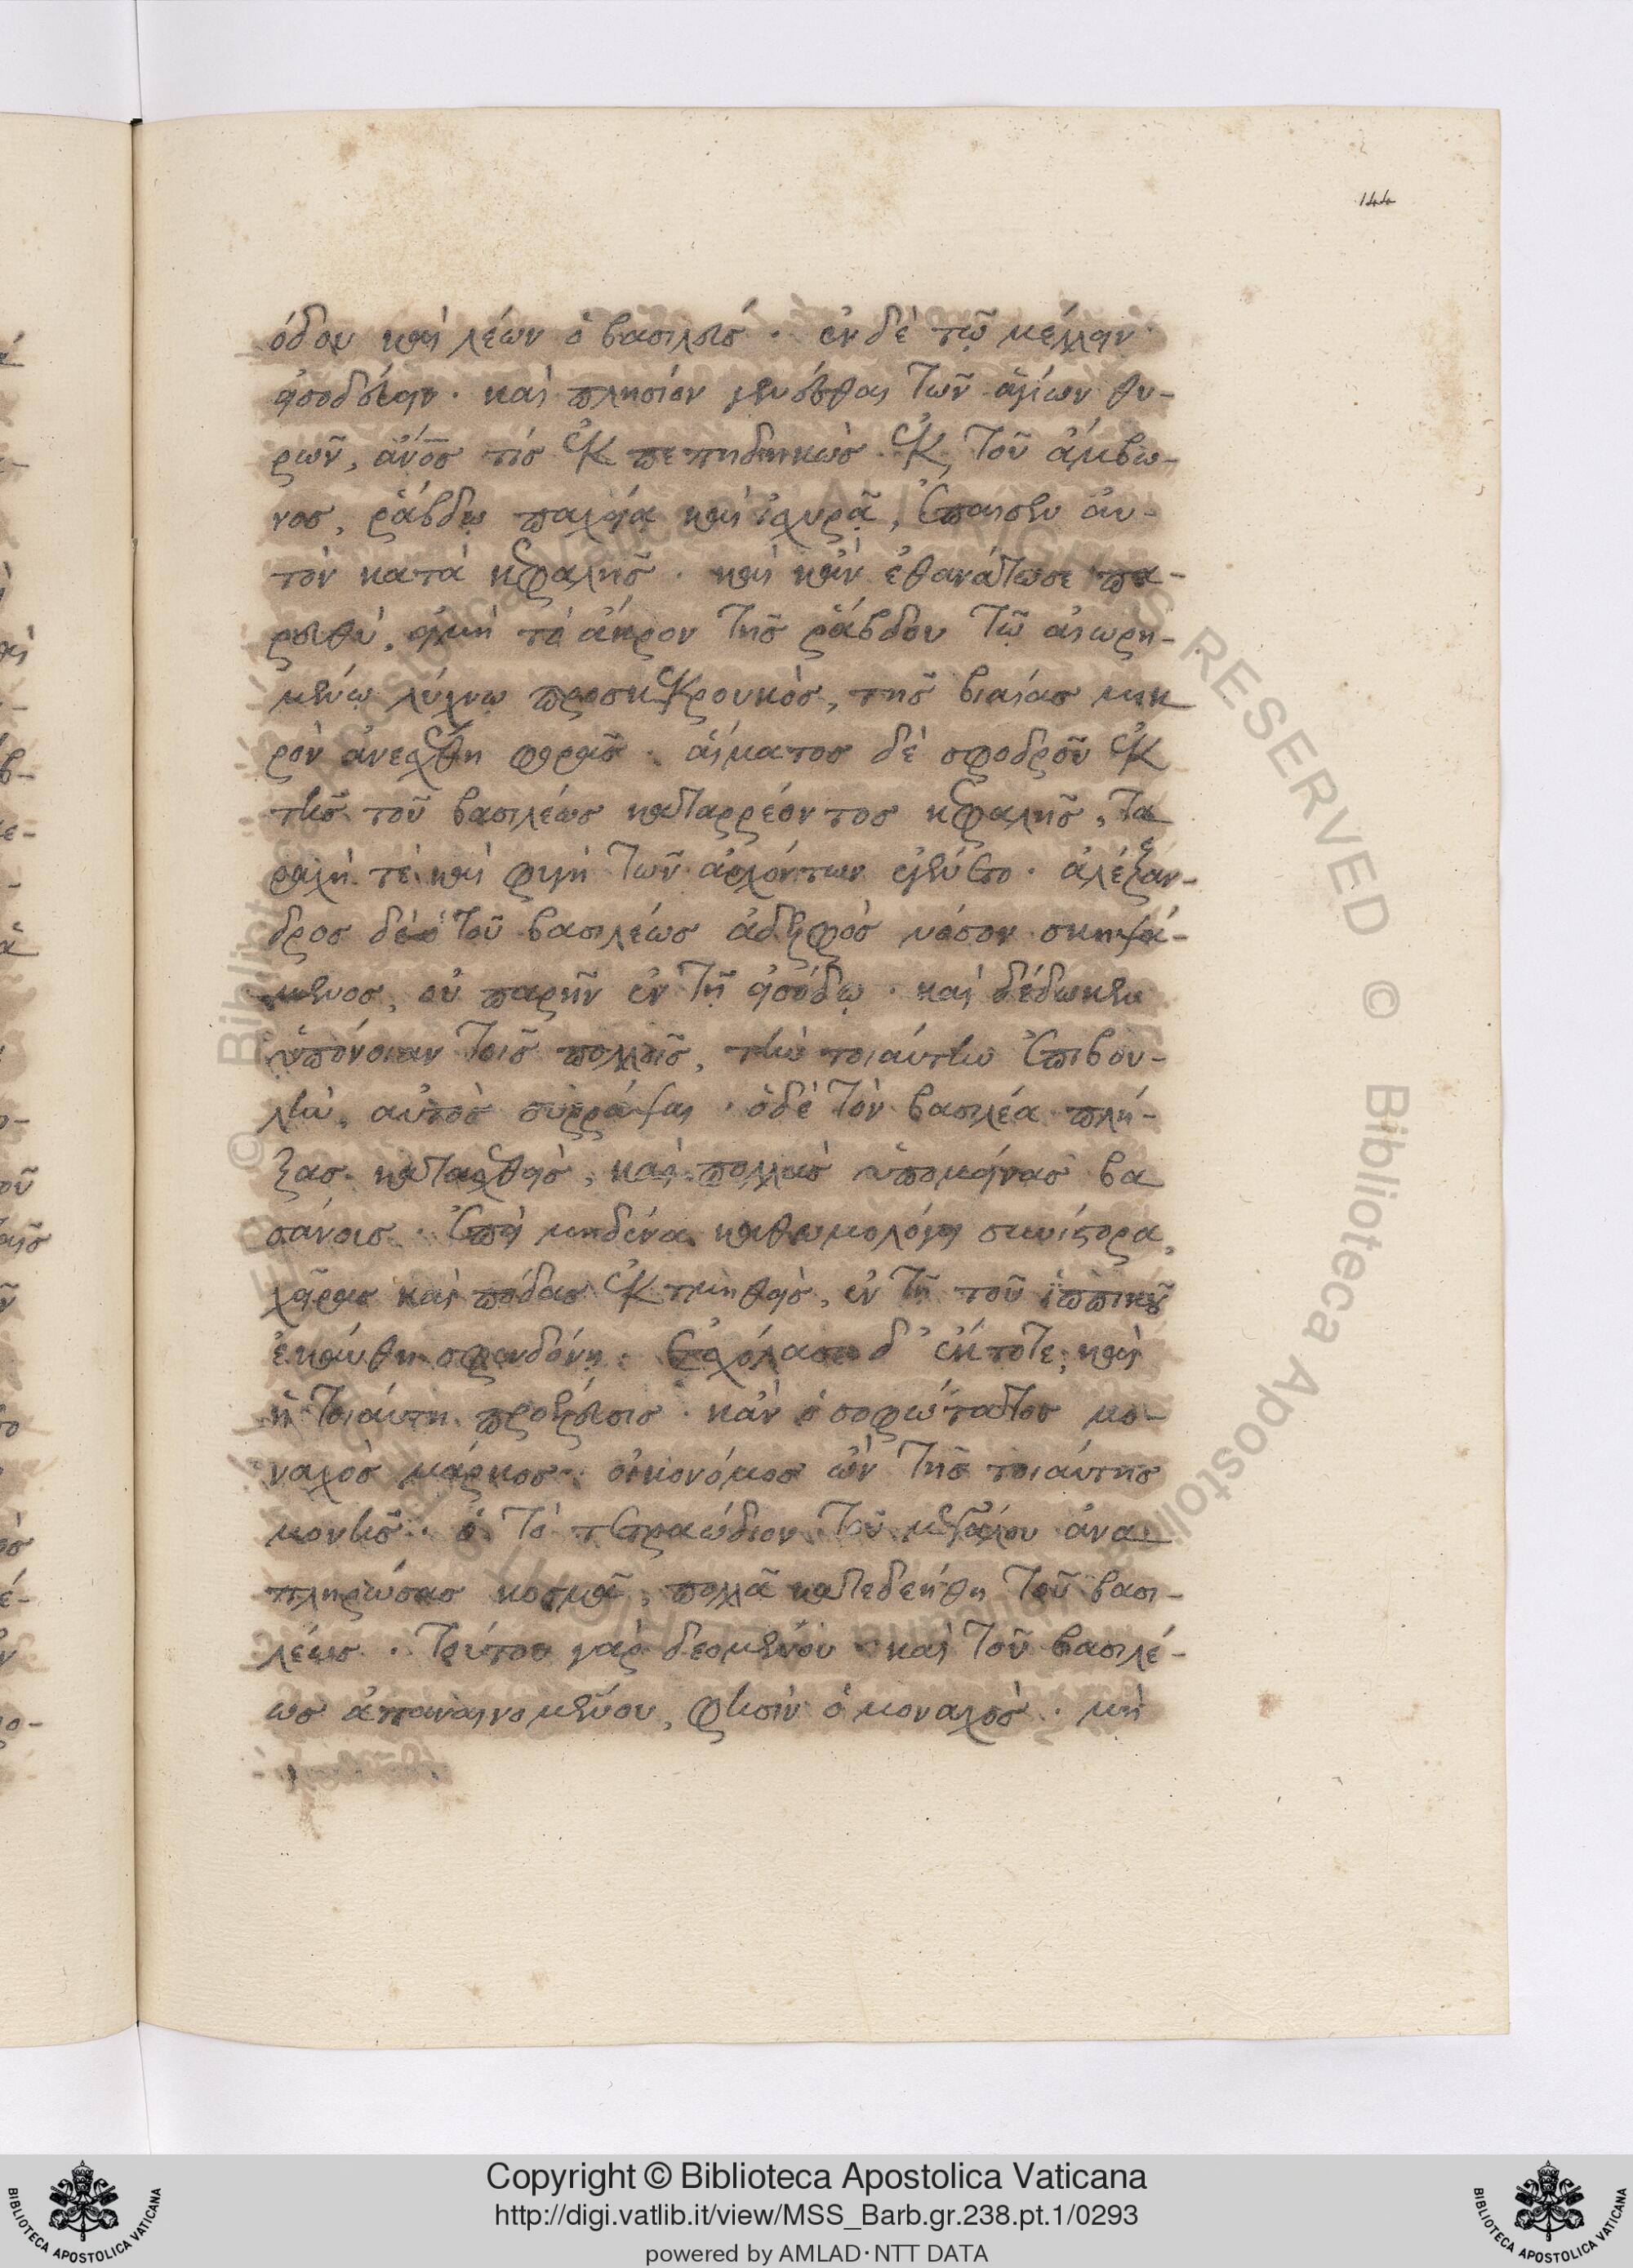 144
όδου καὶ λέων ὁ βασιλεύς · ἐν δὲ τῷ μέλλειν
εἰσοδεύειν · καὶ πλησίον γενέσθαι τῶν ἁγίων θυ-
ρῶν, ἄνος τὶς ἐκπεπηδηκὼς ἐκ τοῦ ἄμβω-
νος, ῥάβδῳ παχείᾳ καὶ ἰσχυρᾷ, ἔπαισεν αὐ-
τὸν κατὰ κεφαλῆς · καὶ κἂν ἐθανάτωσε πα-
ρευθὺ, εἰ μὴ τὸ ἄκρον τῆς ῥάβδου τῷ αἰωρη-
μένῳ λύχνῳ προσκεκρουκὸς, τῆς βιαίας μικ
ρὸν ἀνεχέθη φορᾶς · αἵματος δὲ σφοδροῦ ἐκ
τῆς τοῦ βασιλέως καταρρέοντος κεφαλῆς, τα
ραχή τὲ καὶ φυγὴ τῶν ἀρχόντων ἐγένετο · ἀλέξαν-
δρος δὲ ὁ τοῦ βασιλέως ἀδελφὸς νόσον σκηψά-
μενος, οὐ παρῆν ἐν τῇ εἰσόδῳ · καὶ δέδωκεν
ὑπόνοιαν τοῖς πολλοῖς, τὴν τοιαύτην ἐπιβου-
λὴν, αὐτὸς συρράψαι · ὁ δὲ τὸν βασιλέα πλή-
ξας κατασχεθεὶς, καὶ πολλὰς ὑπομείνας βα
σάνοις · ἐπεὶ μηδένα καθωμολόγει συνίστορα,
χεῖρας καὶ πόδας ἐκτμηθεὶς, ἐν τῇ τοῦ ἱππικοῦ
ἐκαύθη σφενδόνῃ · ἐσχόλασε δ' ἔκτοτε, καὶ
ἡ τοιαύτη προέλευσις · κἂν ὁ σοφώτατος μο-
ναχὸς μάρκος · οἰκονόμος ὢν τῆς τοιαύτης
μονῆς · ὁ τὸ τετραώδιον τοῦ μεγάλου ἀνα
πληρώσας κοσμᾶ, πολλὰ κατεδεήθη τοῦ βασι-
λέως · τούτου γὰρ δεομένου καὶ τοῦ βασιλέ-
ως ἀπαναινομένου, φησὶν ὁ μοναχὸς · μὴ
© Biblioteca Apostolica Vaticana ALL RIGHTS RESERVED
BIBLIOTECA APOSTOLICA VATICANA
Copyright © Biblioteca Apostolica Vaticana
http://digi.vatlib.it/view/MSS_Barb.gr.238.pt.1/0293
powered by AMLAD·NTT DATA
BIBLIOTECA APOSTOLICA VATICANA